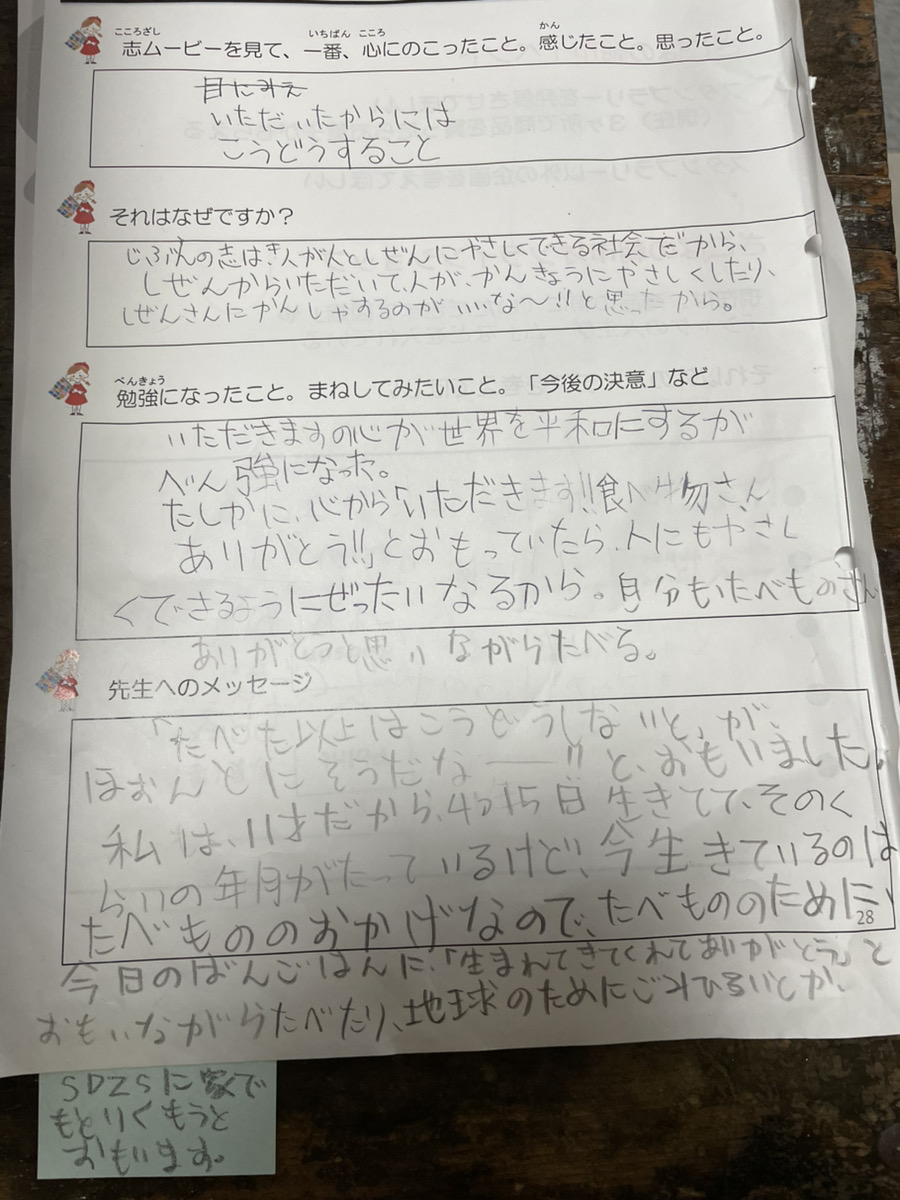 志ムービーを見て、一番、心にのこったこと。感じたこと。思ったこと。
目にみえ
いただいたからには
こうどうすること
それはなぜですか？
じぶんの志は人がんとしぜんにやさしくできる社会だから、
しぜんからいただいて、人が、かんきょうにやさしくしたり、
しぜんさんにかんしゃするのがいいな〜!!と思ったから。
勉強になったこと。まねしてみたいこと。「今後の決意」など
いただきますの心が世界を平和にするが
べん強になった。
たしかに、心から「いただきます!!食べ物さん
ありがとう!!」とおもっていたら、人にもやさし
くできるようにぜったいなるから。自分もたべものさん
ありがとうと思いながらたべる。
先生へのメッセージ
「たべた以上はこうどうしないと」が、
ほおんとにそうだなー!!と、おもいました。
私は、11才だから、4015日生きてて、そのく
らいの年月がたっているけど、今生きているのは
たべもののおかげなので、たべもののために、
28
今日のばんごはんに、「生まれてきてくれてありがとう」と
おもいながらたべたり、地球のためにごみひろいとか、
SDZSに家で
もとりくもうと
おもいます。